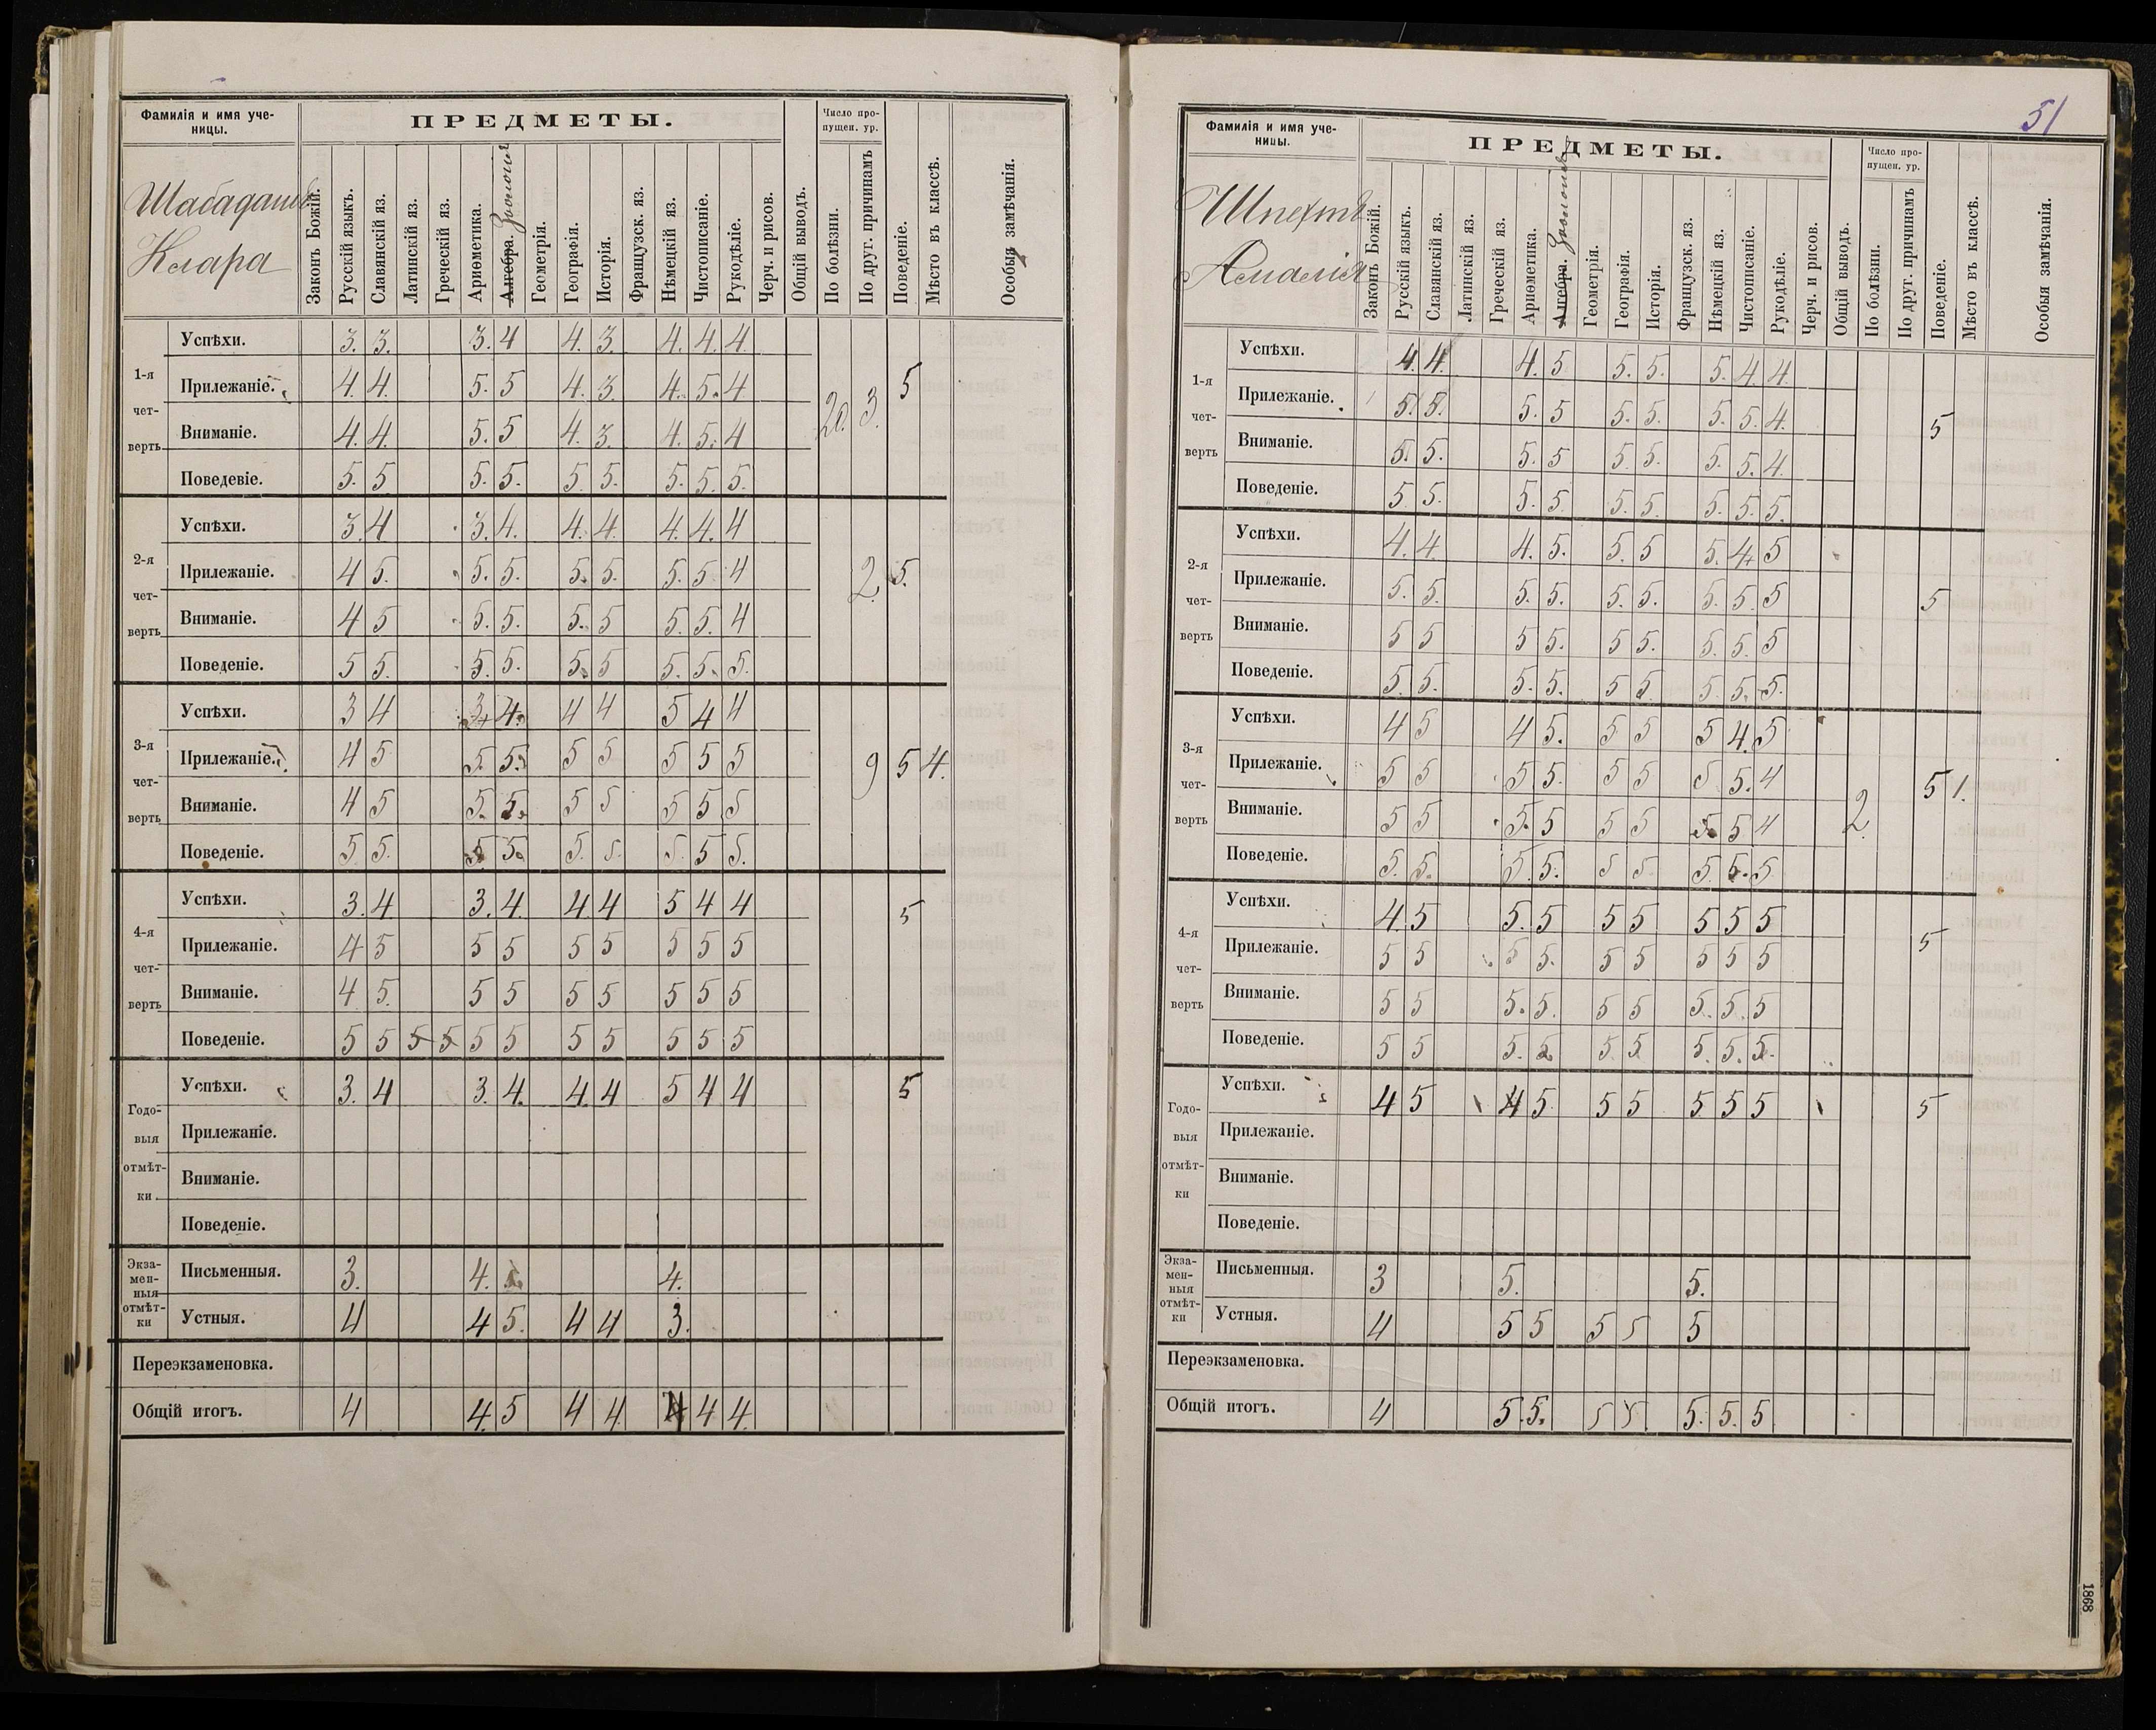 Фамилія и имя уче-
ницы.
ПРЕДМЕТЫ.
Число про-
пущен. ур.
Клара
Законъ Божій.
Русскій языкъ.
Славанскій яз.
Латинскій яз.
Греческій яз.
Ариѳметика.
Алгебра.
Геометрія.
Географія.
Исторія.
Французск. яз.
Нѣмецкій яз.
Чистописаніе.
Рукодѣліе.
Черч. и рисов.
Общій выводъ.
По болѣзни.
По друг. причинамъ
Поведеніе.
Мѣсто въ классѣ.
Особыя замѣчанія.
1-я чет-верть
Успѣхи. 3. 3. 3. 4 4. 3. 4. 4. 4.
Прилежаніе. 4. 4. 5. 5 4. 3. 4. 5. 4 20. 3. 5
Вниманіе. 4. 4. 5. 5 4. 3. 4. 5. 4
Поведевіе. 5. 5 5. 5. 5. 5. 5. 5. 5.
2-я чет-верть
Успѣхи. 3. 4 3. 4. 4. 4. 4. 4. 4
Прилежаніе. 4 5. 5. 5. 5. 5. 5. 5. 4 2. 5.
Вниманіе. 4 5 5. 5. 5. 5 5. 5. 4
Поведеніе. 5 5. 5 5. 5. 5 5. 5. 5.
3-я чет-верть
Успѣхи. 3 4 3 4. 4 4 5 4 4
Прилежаніе. 4 5 5. 5. 5 5 5 5 5 9 5 4.
Вниманіе. 4 5 5. 5. 5 5 5 5 5
Поведеніе. 5. 5. 5 5. 5. 5. 5. 5 5.
4-я чет-верть
Успѣхи. 3. 4 3. 4. 4 4 5 4 4 5
Прилежаніе. 4 5 5 5 5 5 5 5 5
Вниманіе. 4 5. 5 5 5 5 5 5 5
Поведеніе. 5 5 5 5 5 5 5 5 5 5 5
Годо-выя отмѣт-ки
Успѣхи. 3. 4 3. 4. 4 4 5 4 4 5
Прилежаніе.
Вниманіе.
Поведеніе.
Экза-мен-ныя отмѣт-ки
Письменныя. 3. 4. 4.
Устныя. 4 4 5. 4 4 3.
Переэкзаменовка.
Общій итогъ. 4 4. 5 4 4 4 4 4.
51
Фамилія и имя уче-
ницы.
ПРЕДМЕТЫ.
Число про-
пущен. ур.
Шпехтъ
Амалія
Законъ Божій.
Русскій языкъ.
Славянскій яз.
Латинскій яз.
Греческій яз.
Ариѳметика.
Алгебра.
Геометрія.
Географія.
Исторія.
Французск. яз.
Нѣмецкій яз.
Чистописаніе.
Рукодѣліе.
Черч. и рисов.
Общій выводъ.
По болѣзни.
По друг. причинамъ
Поведеніе.
Мѣсто въ классѣ.
Особыя замѣчанія.
1-я чет-верть
Успѣхи. 4. 4. 4. 5 5. 5. 5. 4. 4.
Прилежаніе. 5. 5. 5. 5 5. 5. 5. 5. 4.
Вниманіе. 5. 5. 5. 5 5. 5. 5. 5. 4. 5
Поведеніе. 5 5. 5. 5. 5. 5. 5. 5. 5.
2-я чет-верть
Успѣхи. 4. 4. 4. 5. 5. 5 5. 4 5
Прилежаніе. 5. 5. 5. 5. 5. 5. 5. 5. 5 5
Вниманіе. 5 5 5 5. 5 5. 5. 5. 5
Поведеніе. 5. 5. 5. 5. 5 5. 5. 5. 5.
3-я чет-верть
Успѣхи. 4 5 4 5. 5 5 5 4. 5
Прилежаніе. 5 5 5 5. 5 5 5 5. 4 5 1.
Вниманіе. 5 5 5. 5 5 5 5. 5 4 2.
Поведеніе. 5. 5. 5. 5. 5 5. 5. 5. 5
4-я чет-верть
Успѣхи. 4. 5 5. 5 5 5 5 5 5
Прилежаніе. 5 5 5 5. 5 5 5 5 5 5
Вниманіе. 5 5 5. 5. 5 5 5. 5. 5
Поведеніе. 5 5 5. 5. 5. 5. 5. 5. 5.
Годо-выя отмѣт-ки
Успѣхи. 4 5 4 5 5 5 5 5 5 5
Прилежаніе.
Вниманіе.
Поведеніе.
Экза-мен-ныя отмѣт-ки
Письменныя. 3 5. 5.
Устныя. 4 5 5 5 5 5
Переэкзаменовка.
Общій итогъ. 4 5. 5. 5 5. 5. 5. 5
1868